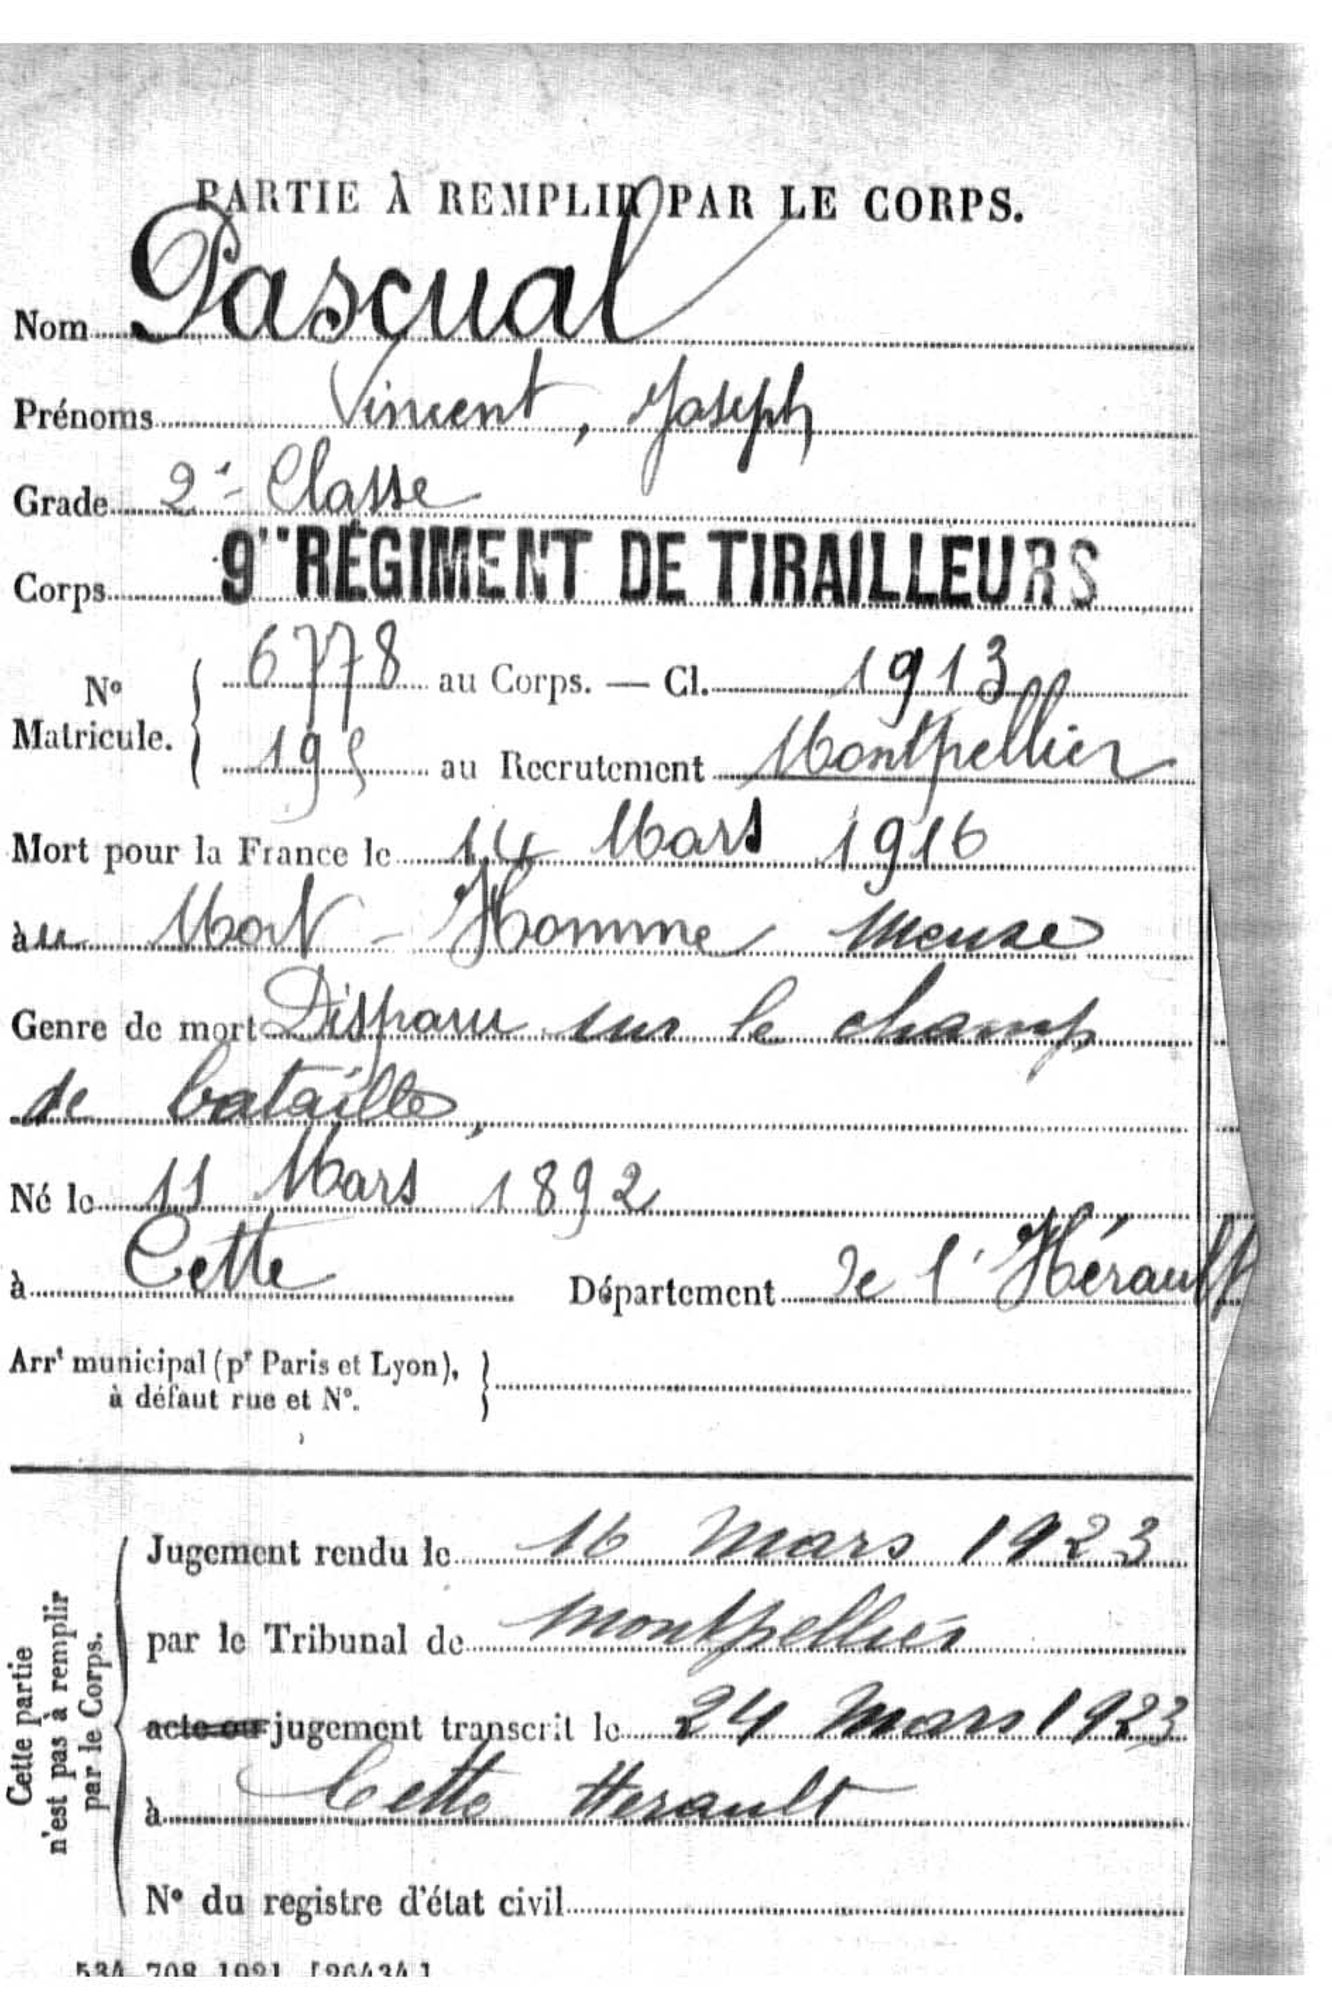 PARTIE À REMPLIR PAR LE CORPS.
Nom Pascual
Prénoms Vincent, Joseph
Grade 2e Classe
Corps 9me RÉGIMENT DE TIRAILLEURS
No Matricule. { 6778 au Corps. — Cl. 1913
195 au Recrutement Montpellier
Mort pour la France le 14 Mars 1916
àu Mort-Homme Meuse
Genre de mort Disparu sur le champ
de bataille,
Né le 11 Mars 1892
à Cette Département de l'Hérault
Arrt municipal (pr Paris et Lyon), }
à défaut rue et No.
Cette partie
n'est pas à remplir
par le Corps.
Jugement rendu le 16 mars 1923
par le Tribunal de Montpellier
acte ou jugement transcrit le 24 mars 1923
à Cette Herault
No du registre d'état civil
534 708 1921 [26434]